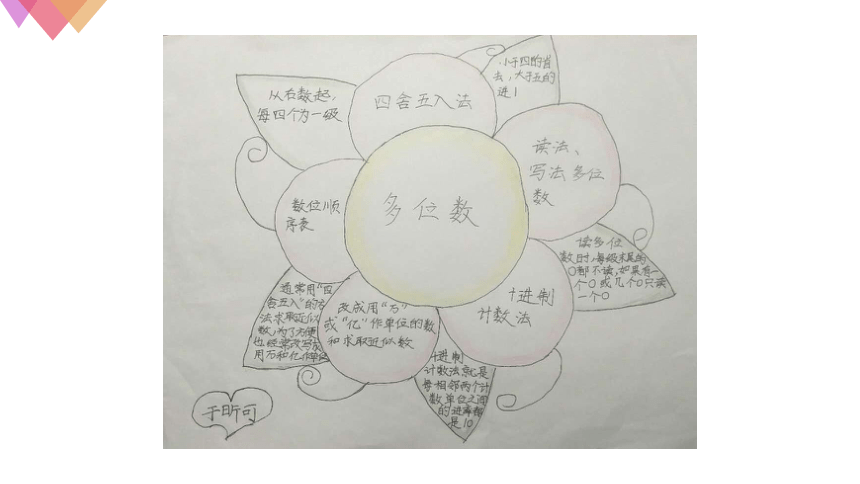 多位数
四舍五入法
小于四的省
去，大于五的
进1
读法、
写法多位
数
读多位
数时，每级末尾的
0都不读，如果有一
个0或几个0只读
一个0
十进制
计数法
十进制
计数法就是
每相邻两个计
数单位之间
的进率都
是10
改成用“万”
或“亿”作单位的数
和求取近似数
通常用“四
舍五入”的方
法求取近似
数，为了方便
也经常改写成
用万和亿作单位
数位顺
序表
从右数起，
每四个为一级
于昕可